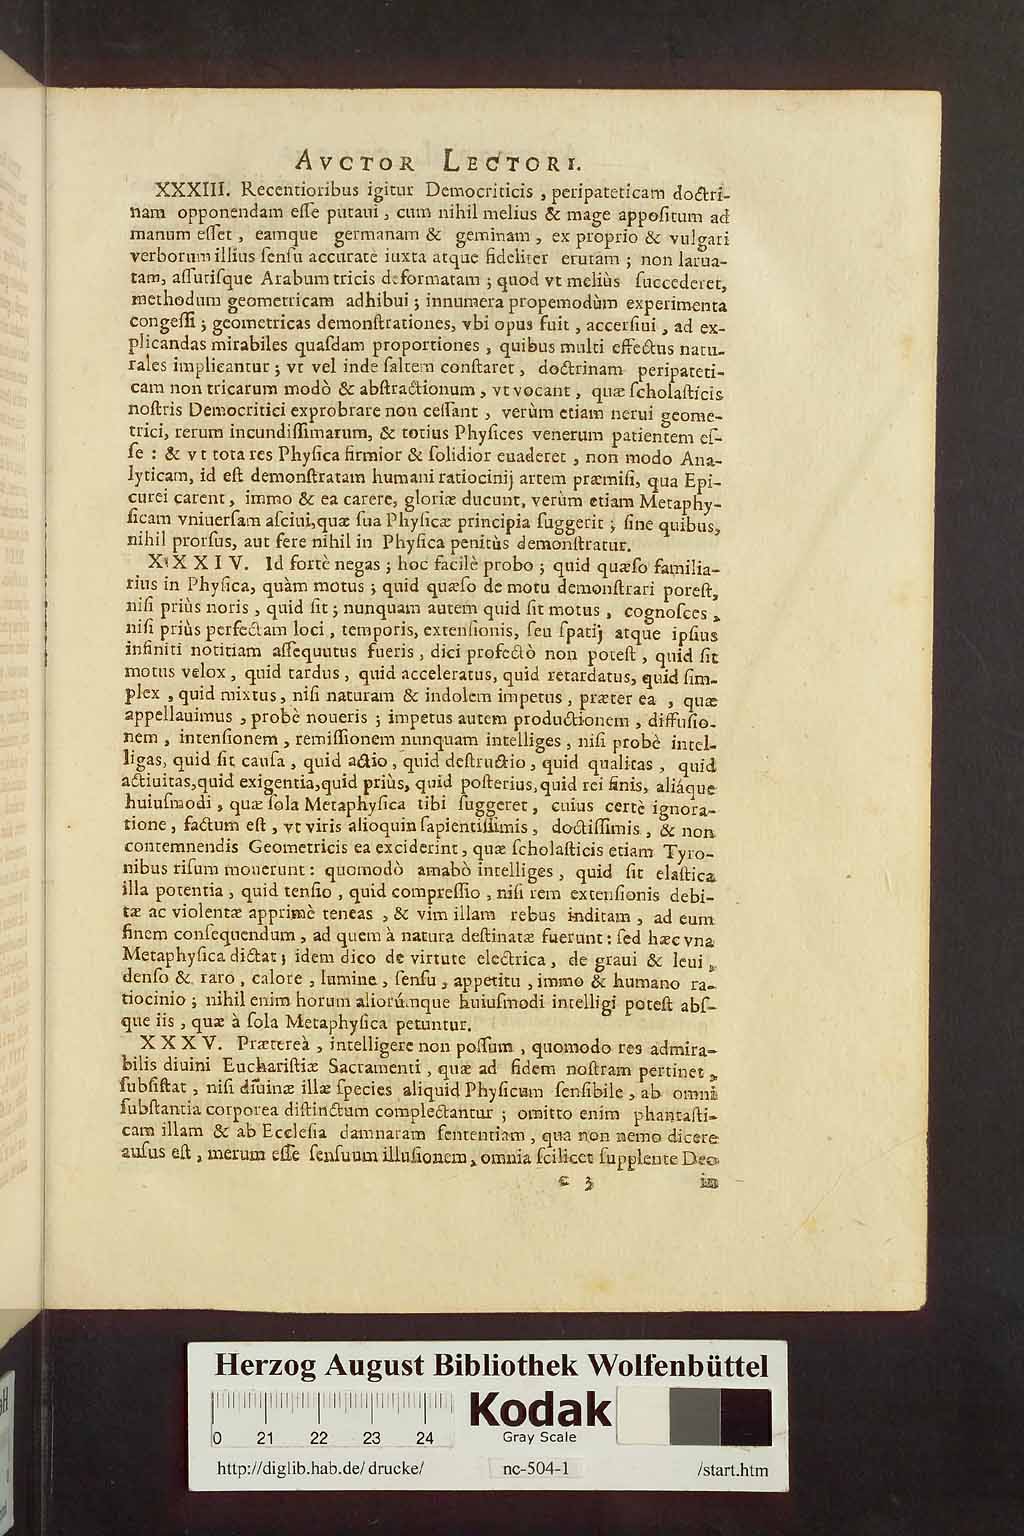 AVCTOR LECTORI.
XXXIII. Recentioribus igitur Democriticis, peripateticam doctri-
nam opponendam eſſe putaui, cum nihil melius & mage appoſitum ad
manum eſſet, eamque germanam & geminam, ex proprio & vulgari
verborum illius ſenſu accuratè iuxta atque fideliter erutam; non larua-
tam, aſſutiſque Arabum tricis deformatam; quod vt meliùs ſuccederet,
methodum geometricam adhibui; innumera propemodùm experimenta
congeſſi; geometricas demonſtrationes, vbi opus fuit, accerſiui, ad ex-
plicandas mirabiles quaſdam proportiones, quibus multi effectus natu-
rales implicantur; vt vel inde ſaltem conſtaret, doctrinam peripateti-
cam non tricarum modò & abſtractionum, vt vocant, quæ ſcholaſticis
noſtris Democritici exprobrare non ceſſant, verùm etiam nerui geome-
trici, rerum incundiſſimarum, & totius Phyſices venerum patientem eſ-
ſe: & vt tota res Phyſica firmior & ſolidior euaderet, non modo Ana-
lyticam, id eſt demonſtratam humani ratiocinij artem præmiſi, qua Epi-
curei carent, immo & ea carere, gloriæ ducunt, verùm etiam Metaphy-
ſicam vniuerſam aſciui, quæ ſua Phyſicæ principia ſuggerit; ſine quibus,
nihil prorſus, aut fere nihil in Phyſica penitùs demonſtratur.
XXXIV. Id fortè negas; hoc facilè probo; quid quæſo familia-
rius in Phyſica, quàm motus; quid quæſo de motu demonſtrari poteſt,
niſi priùs noris, quid ſit; nunquam autem quid ſit motus, cognoſces,
niſi priùs perfectam loci, temporis, extenſionis, ſeu ſpatij atque ipſius
infiniti notitiam aſſequutus fueris, dici profectò non poteſt, quid ſit
motus velox, quid tardus, quid acceleratus, quid retardatus, quid ſim-
plex, quid mixtus, niſi naturam & indolem impetus, præter ea, quæ
appellauimus, probè noueris; impetus autem productionem, diffuſio-
nem, intenſionem, remiſſionem nunquam intelliges, niſi probè intel-
ligas, quid ſit cauſa, quid actio, quid deſtructio, quid qualitas, quid
actiuitas, quid exigentia, quid priùs, quid poſterius, quid rei finis, aliáque
huiuſmodi, quæ ſola Metaphyſica tibi ſuggeret, cuius certè ignora-
tione, factum eſt, vt viris alioquin ſapientiſſimis, doctiſſimis, & non
contemnendis Geometricis ea exciderint, quæ ſcholaſticis etiam Tyro-
nibus riſum mouerunt: quomodò amabò intelliges, quid ſit elaſtica
illa potentia, quid tenſio, quid compreſſio, niſi rem extenſionis debi-
tæ ac violentæ apprimè teneas, & vim illam rebus inditam, ad eum
finem conſequendum, ad quem à natura deſtinatæ fuerunt: ſed hæc vna
Metaphyſica dictat; idem dico de virtute electrica, de graui & leui,
denſo & raro, calore, lumine, ſenſu, appetitu, immo & humano ra-
tiocinio; nihil enim horum aliorúmque huiuſmodi intelligi poteſt abſ-
que iis, quæ à ſola Metaphyſica petuntur.
XXXV. Prætereà, intelligere non poſſum, quomodo res admira-
bilis diuini Euchariſtiæ Sacramenti, quæ ad fidem noſtram pertinet,
ſubſiſtat, niſi diuinæ illæ ſpecies aliquid Phyſicum ſenſibile, ab omni
ſubſtantia corporea diſtinctum complectantur; omitto enim phantaſti-
cam illam & ab Eccleſia damnatam ſententiam, qua non nemo dicere
auſus eſt, merum eſſe ſenſuum illuſionem, omnia ſcilicet ſupplente Deo
c 3 in
Herzog August Bibliothek Wolfenbüttel
0 21 22 23 24
Kodak
Gray Scale
http://diglib.hab.de/drucke/ nc-504-1 /start.htm